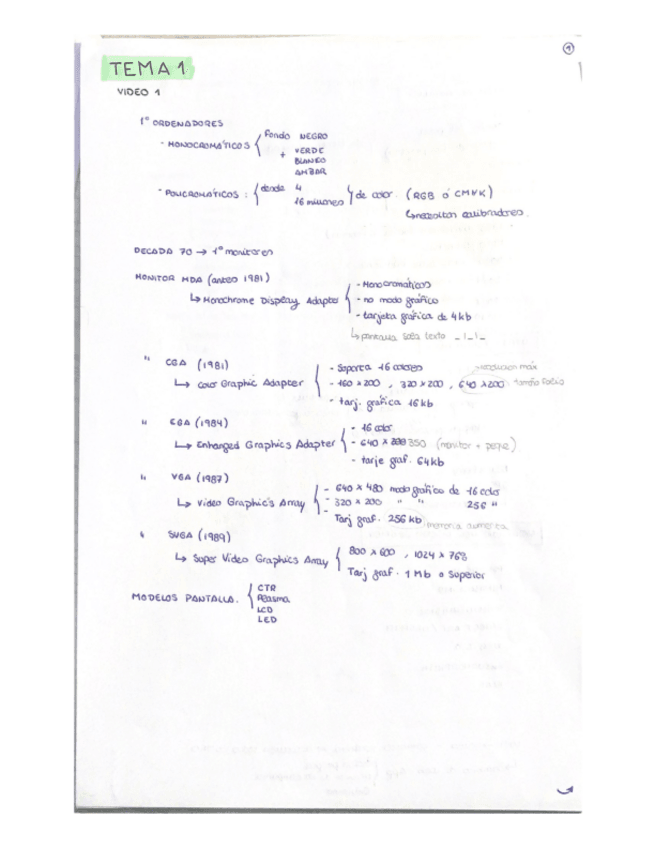 1
TEMA 1
VIDEO 1
1º ORDENADORES
- MONOCROMÁTICOS { Fondo NEGRO
+ VERDE
BLANCO
AMBAR
- POLICROMÁTICOS : { desde 4
16 millones } de color. (RGB ó CMYK)
↳ necesitan calibradores.
DECADA 70 → 1º monitores
MONITOR MDA (antes 1981)
↳ Monochrome Display Adapter
- Monocromáticos
- no modo gráfico
- tarjeta gráfica de 4kb
↳ pantalla solo texto _I_I_
" CGA (1981)
↳ Color Graphic Adapter
- Soporta 16 colores
- 160 x 200 , 320 x 200 , 640 x 200 tamaño folio
- tarj. gráfica 16 kb
" EGA (1984)
↳ Enhanged Graphics Adapter
- 16 color
- 640 x 350 (monitor + )
- tarje graf. 64kb
" VGA (1987)
↳ Video Graphic's Array
- 640 x 480 modo gráfico de 16 color
- 320 x 200 " " 256 "
- Tarj graf. 256 kb memoria aumenta
" SVGA (1989)
↳ Super Video Graphics Array
800 x 600 , 1024 x 768
Tarj graf. 1 Mb o Superior
MODELOS PANTALLA. { CTR
Plasma
LCD
LED